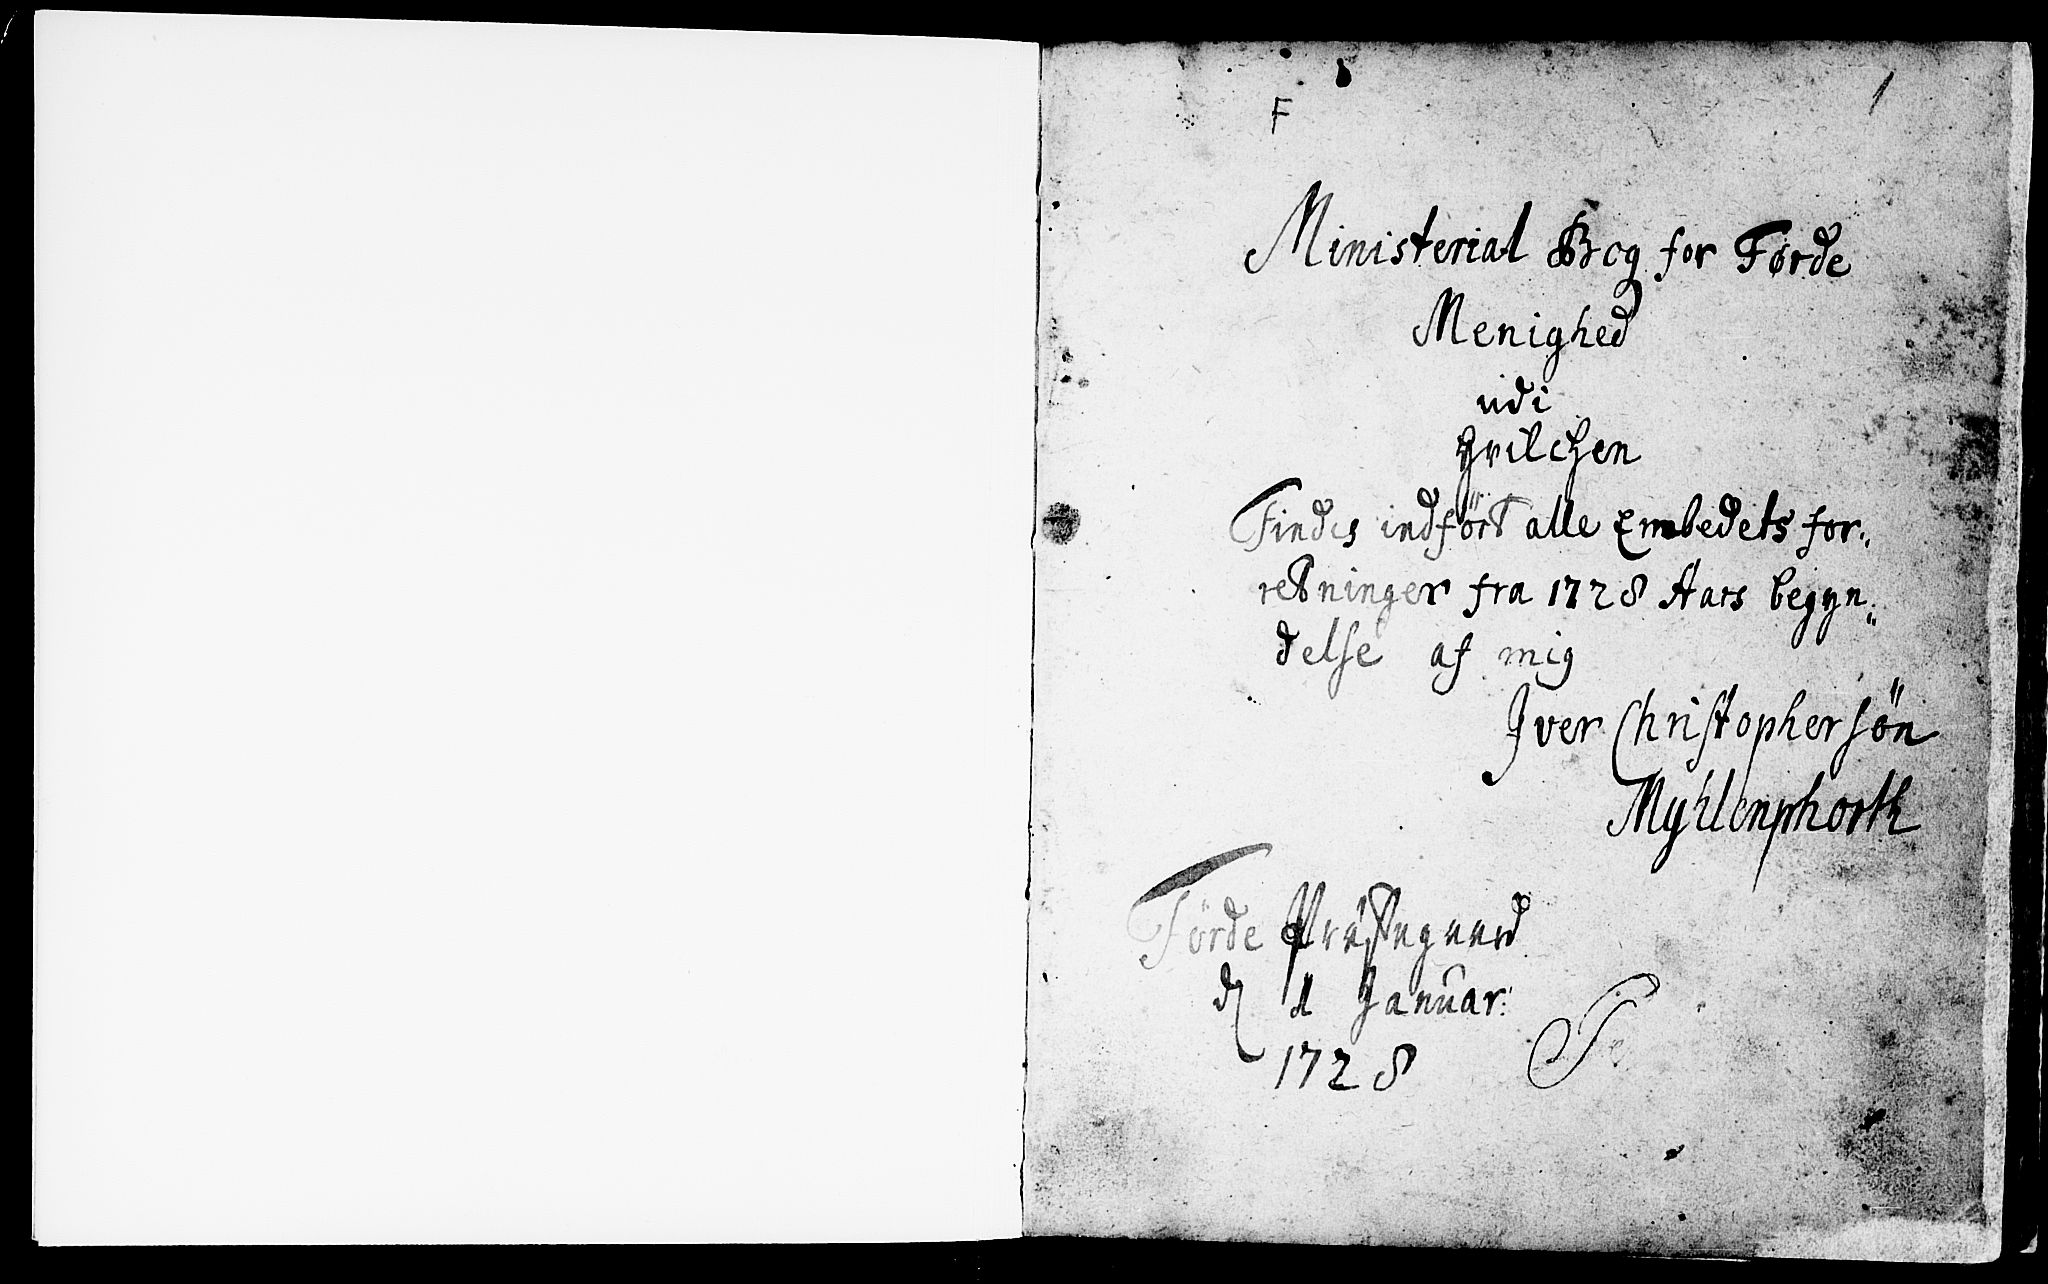 F
1
Ministerial Bog for Førde
Menighed
udi
hvilchen
Findes indført alle Embedets for„
retninger fra 1728 Aars begyn„
delse af mig
Iver Christophersøn
Myhlenphorth
Førde Præstegaard
d 1 Januar:
1728